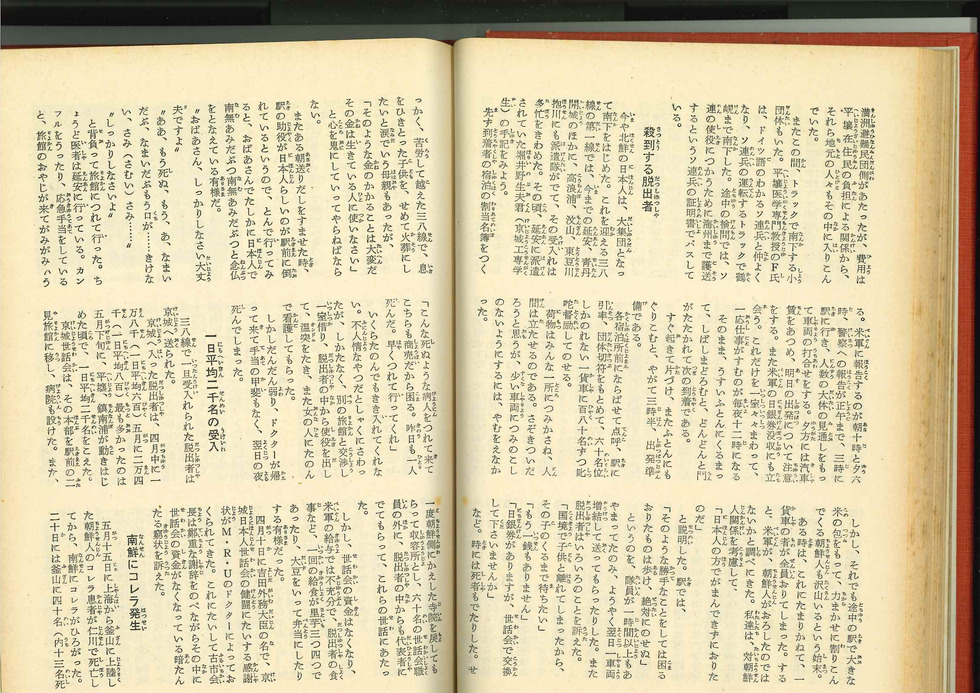 満洲避難民団側があたったが、費用は
平壌在住民の負担による関係から、
それら地元の人もその中に入りこん
でいた。
またこの間、トラックで南下する小
団体もいた。平壌医学専門教授のF氏
は、ドイツ語のわかるソ連兵と仲よく
なり、ソ連兵の運転するトラックで鶴
峴まで南下した。途中の検問では、ソ
連の使役につかうために海州まで護送
するというソ連兵の証明書でパスして
いる。
殺到する脱出者
今や北鮮の日本人は、大集団となっ
て南下をはじめた。これを迎える三八
線の第一線では、今までの延安、青丹
開城のほかに、高浪浦、汶山、東豆川
抱川にも派遣隊がでて、その受入れは
多忙をきわめた。その頃、延安に派遣
されていた堀井野生夫君(京城工専学
生)の手記をみよう。
先ず到着者の宿泊の割当名簿をつく
る。米軍に報告するのが朝十時と夕六
時、警察への報告が正午まで、三時に
駅に行き、人数の大体の見通しをもっ
て車両の打合せをする。夕方には汽車
賃をあつめ、明日の出発について注意
をする。また米軍の日銀券没収にも立
会う。これだけを一室々々まわって、
一応仕事がすむのが毎夜十二時になる
そのまま、うすいふとんにくるまっ
て、しばしまどろむと、どんどんと門
がたたかれて、次の到着である。
すぐ起きて片づけ、またふとんにも
ぐりこむと、やがて三時半、出発準
備である。
各宿泊所前にならばせて点呼、駅に
引率、団体切符をもとめて、六十名位
しかのれない一貨車に百八十名ずつ𠮟
咤督励してのせる。
荷物はみんな一所につみかさね、人
間は立たせるのである。さぞきついだ
ろうと思うが、少い車両につみのこし
のないようにするには、やむをえなか
った。
しかし、それでも途中の駅で大きな
米の包をもって、力まかせに割りこん
でくる朝鮮人も沢山いるという始末。
ある時は、これにたまりかねて、一
貨車の者が全員おりてしまった。する
と、米軍が、朝鮮人がおろしたのでは
ないかと調べにきた。私達は、対朝鮮
人関係を考慮して、
「日本人の方でがまんできずにおりた
のだ」
と説明した。駅では、
「そのような勝手なことをしては困る
おりたものは歩け、絶対にのせぬ」
というのを、隊員が一時間以上もあ
やまってたのみ、ようやく翌日一車両
増結して送ってもらったりした。また
脱出者はいろいろのことを訴えた。
「国境で子供と離れてしまったから、
その子のくるまで待ちたい」
「もう一銭もありません」
「日銀券がありますが、世話会で交換
して下さいませんか」
など。時には死者もでたりした。せ
っかく、苦労して越えた三八線で、息
をひきとった子供を、せめて火葬にし
たいと涙でいう母親もあったが、
「そのような金のかかることは大変だ
その金は生きている人に使いなさい」
と心を鬼にしていってやらねばなら
ない。
またある朝送りだしをすませた時
駅の助役が日本人らしいのが駅前に倒
れているというので、とんで行ってみ
ると、おばあさんでたしかに日本人で
南無あみだぶつ南無あみだぶつと念仏
をとなえている有様だ。
〝おばあさん、しっかりしなさい大丈
夫ですよ〟
〝ああ、もう死ぬ、もう、あ、なまい
だぶ、なまいだぶもうロが……きけな
い、さみへ(さむい)さみ……〟
〝しっかりしなさいよ〟
と背負って旅館につれて行った。ち
ょうど医者は延安に行っている。カン
フルをうったり、応急手当をしている
と、旅館のおやじが来てがみがみいう
「こんな死ぬような病人をつれて来て
こちらも商売だから困る。昨日も一人
死んだ。早くつれて行ってくれ」
いくらたのんでもきき入れてくれな
い。不人情なやつだとしゃくにさわっ
たが、しかたなく、別の旅館と交渉し
一室借り、脱出者の中から使役を出し
て、温突をたき、また女の人にたのん
で看護してもらった。
しかしだんだん弱り、ドクターが帰
って来て手当の甲斐もなく、翌日の夜
死んでしまった。
一日平均二千名の受入
三八線で一旦受入れられた脱出者は
京城へ送られた。
京城へ入った脱出者は、四月中に一
万八千(一日平均六百)五月に二万四
千(一日平均八百)最も多かったのは
五月下旬に、平壌、鎮南浦が動きはじ
めた頃で、一日平均二千名をこえた。
京城世話会は、その本部を駅前の二
見旅館に移し、病院も設けた。また、
一度朝鮮側にかえした寺院を戻しても
らって収容所とし、六十名の世話会職
員の外に、脱出者の中からも代表者に
でてもらって、これらの世話にあたっ
た。
しかし、世話会の資金はなくなり、
米軍の給与では不充分で、脱出者の食
事など、一回の給食が里芋三つ四つで
あったり、大豆をいって弁当にしたり
する有様だった。
四月十日に吉田外務大臣の名で、京
城日本人世話会の健闘にたいする感謝
状がM・R・Uのドクターによってお
くられてきた。これにたいして古市会
長は鄭重な謝辞をのべながらその中に
世話会の資金がなくなっている暗たん
たる窮状を訴えた。
南鮮にコレラ発生
五月十五日に上海から釜山に上陸し
た朝鮮人のコレラ患者が仁川で死亡し
てから、南鮮にコレラがひろがった。
二十日には釜山に四十名、内十三名死